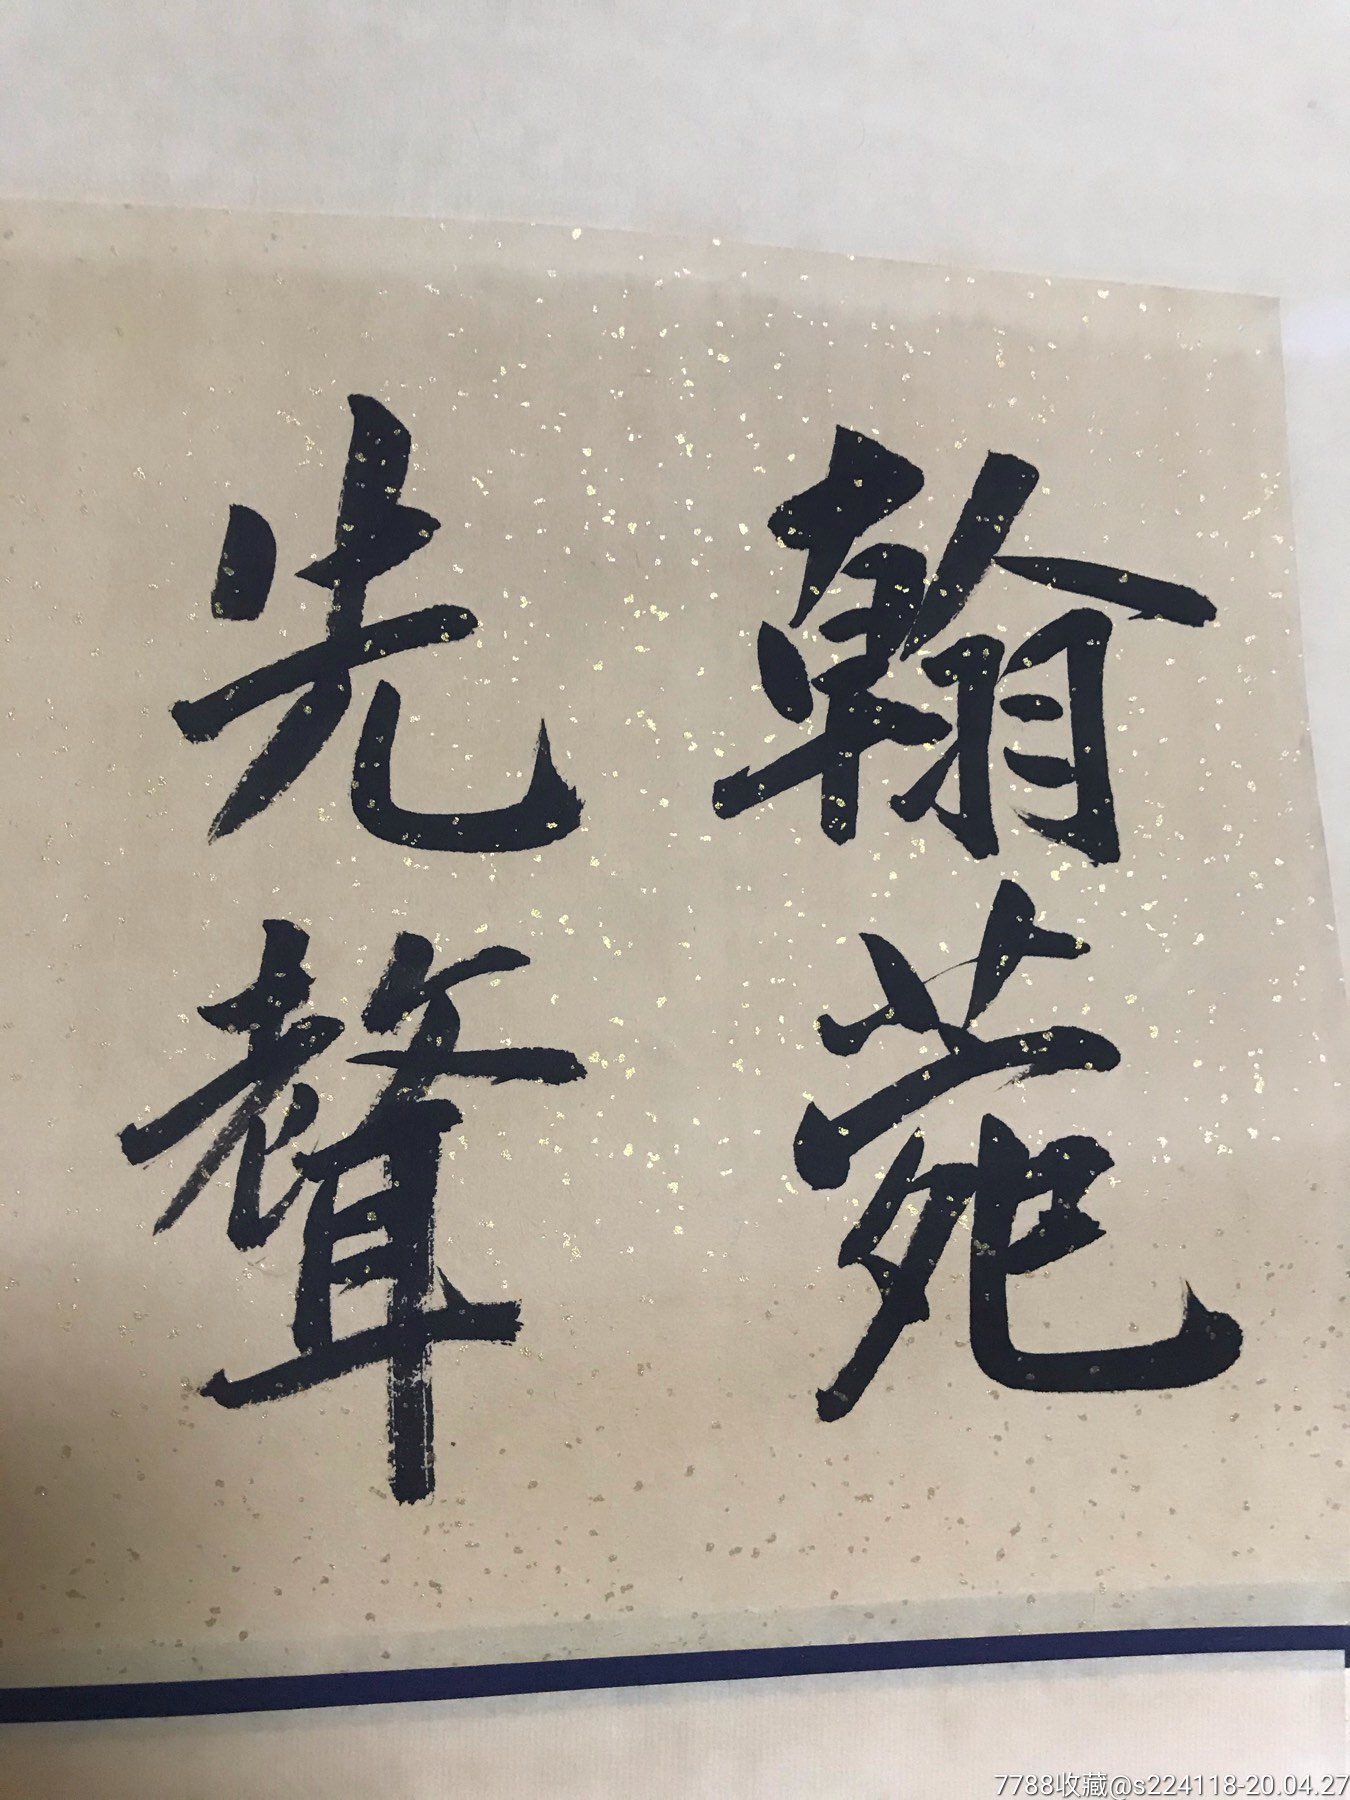 翰苑
先聲
7788收藏@s224118-20.04.27